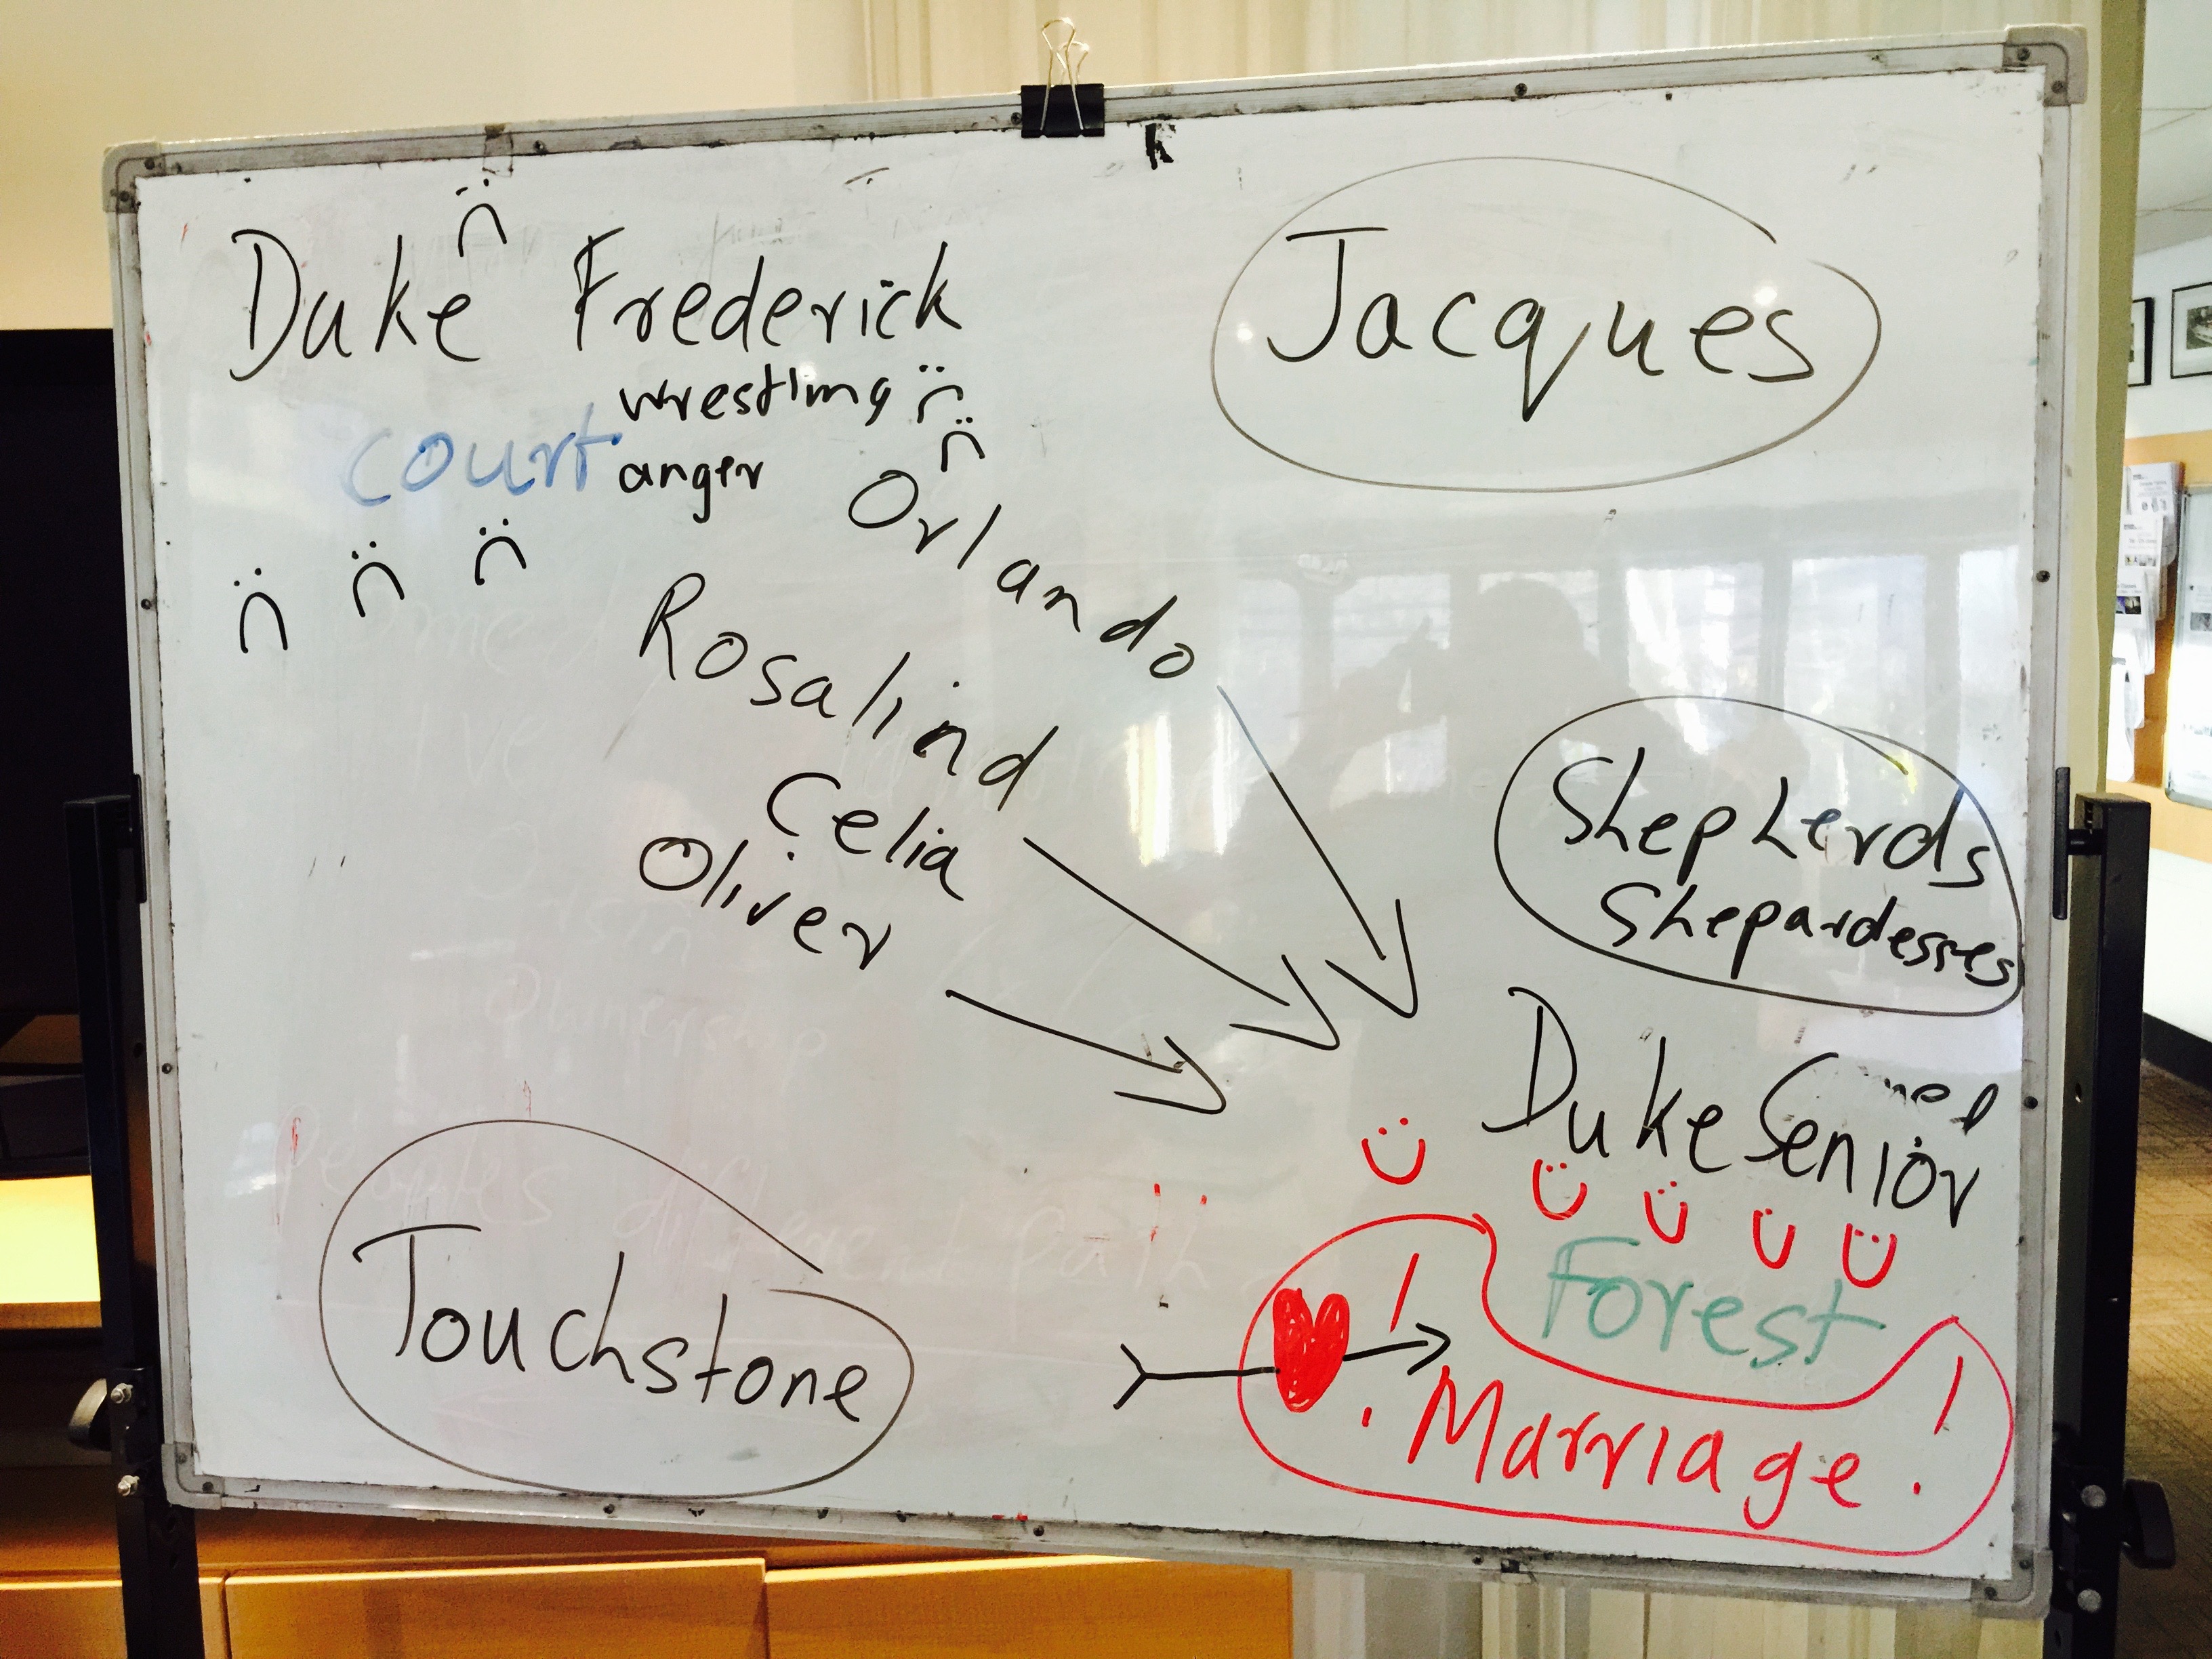 Duke Frederick
wrestling
court
anger
Jacques
Orlando
Rosalind
Celia
Oliver
Shepherds
Shepardesses
Duke Senior
Forest
! Marriage !
Touchstone
Ownership
Peoples different path